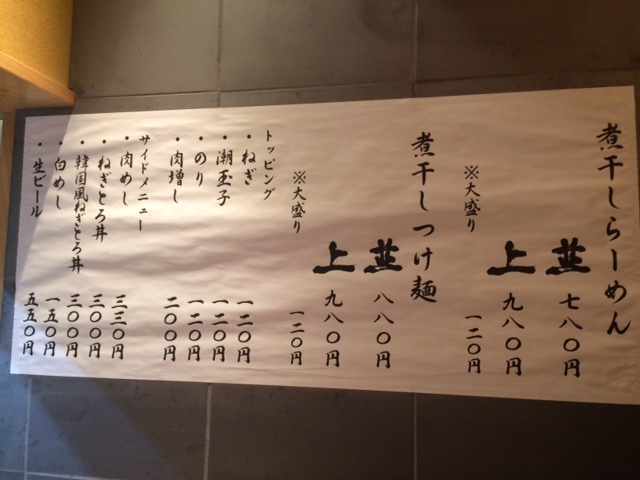 煮干しらーめん
並 七八〇円
上 九八〇円
※大盛り 一二〇円
煮干しつけ麺
並 八八〇円
上 九八〇円
※大盛り 一二〇円
トッピング
・ねぎ 一二〇円
・潮玉子 一二〇円
・のり 一二〇円
・肉増し 二〇〇円
サイドメニュー
・肉めし 三三〇円
・ねぎとろ丼 三〇〇円
・韓国風ねぎとろ丼 三〇〇円
・白めし 一五〇円
・生ビール 五五〇円